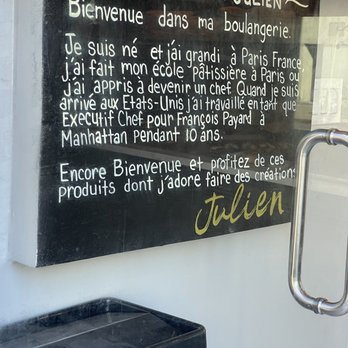 JULIEN
Bienvenue dans ma boulangerie.
Je suis né et j'ai grandi à Paris France,
j'ai fait mon école pâtissière à Paris ou
j'ai appris à devenir un chef Quand je suis
arrivé aux Etats-Unis j'ai travaillé en tant que
Executif Chef pour François Payard à
Manhattan pendant 10 ans.
Encore Bienvenue et profitez de ces
produits dont j'adore faire des créations
Julien